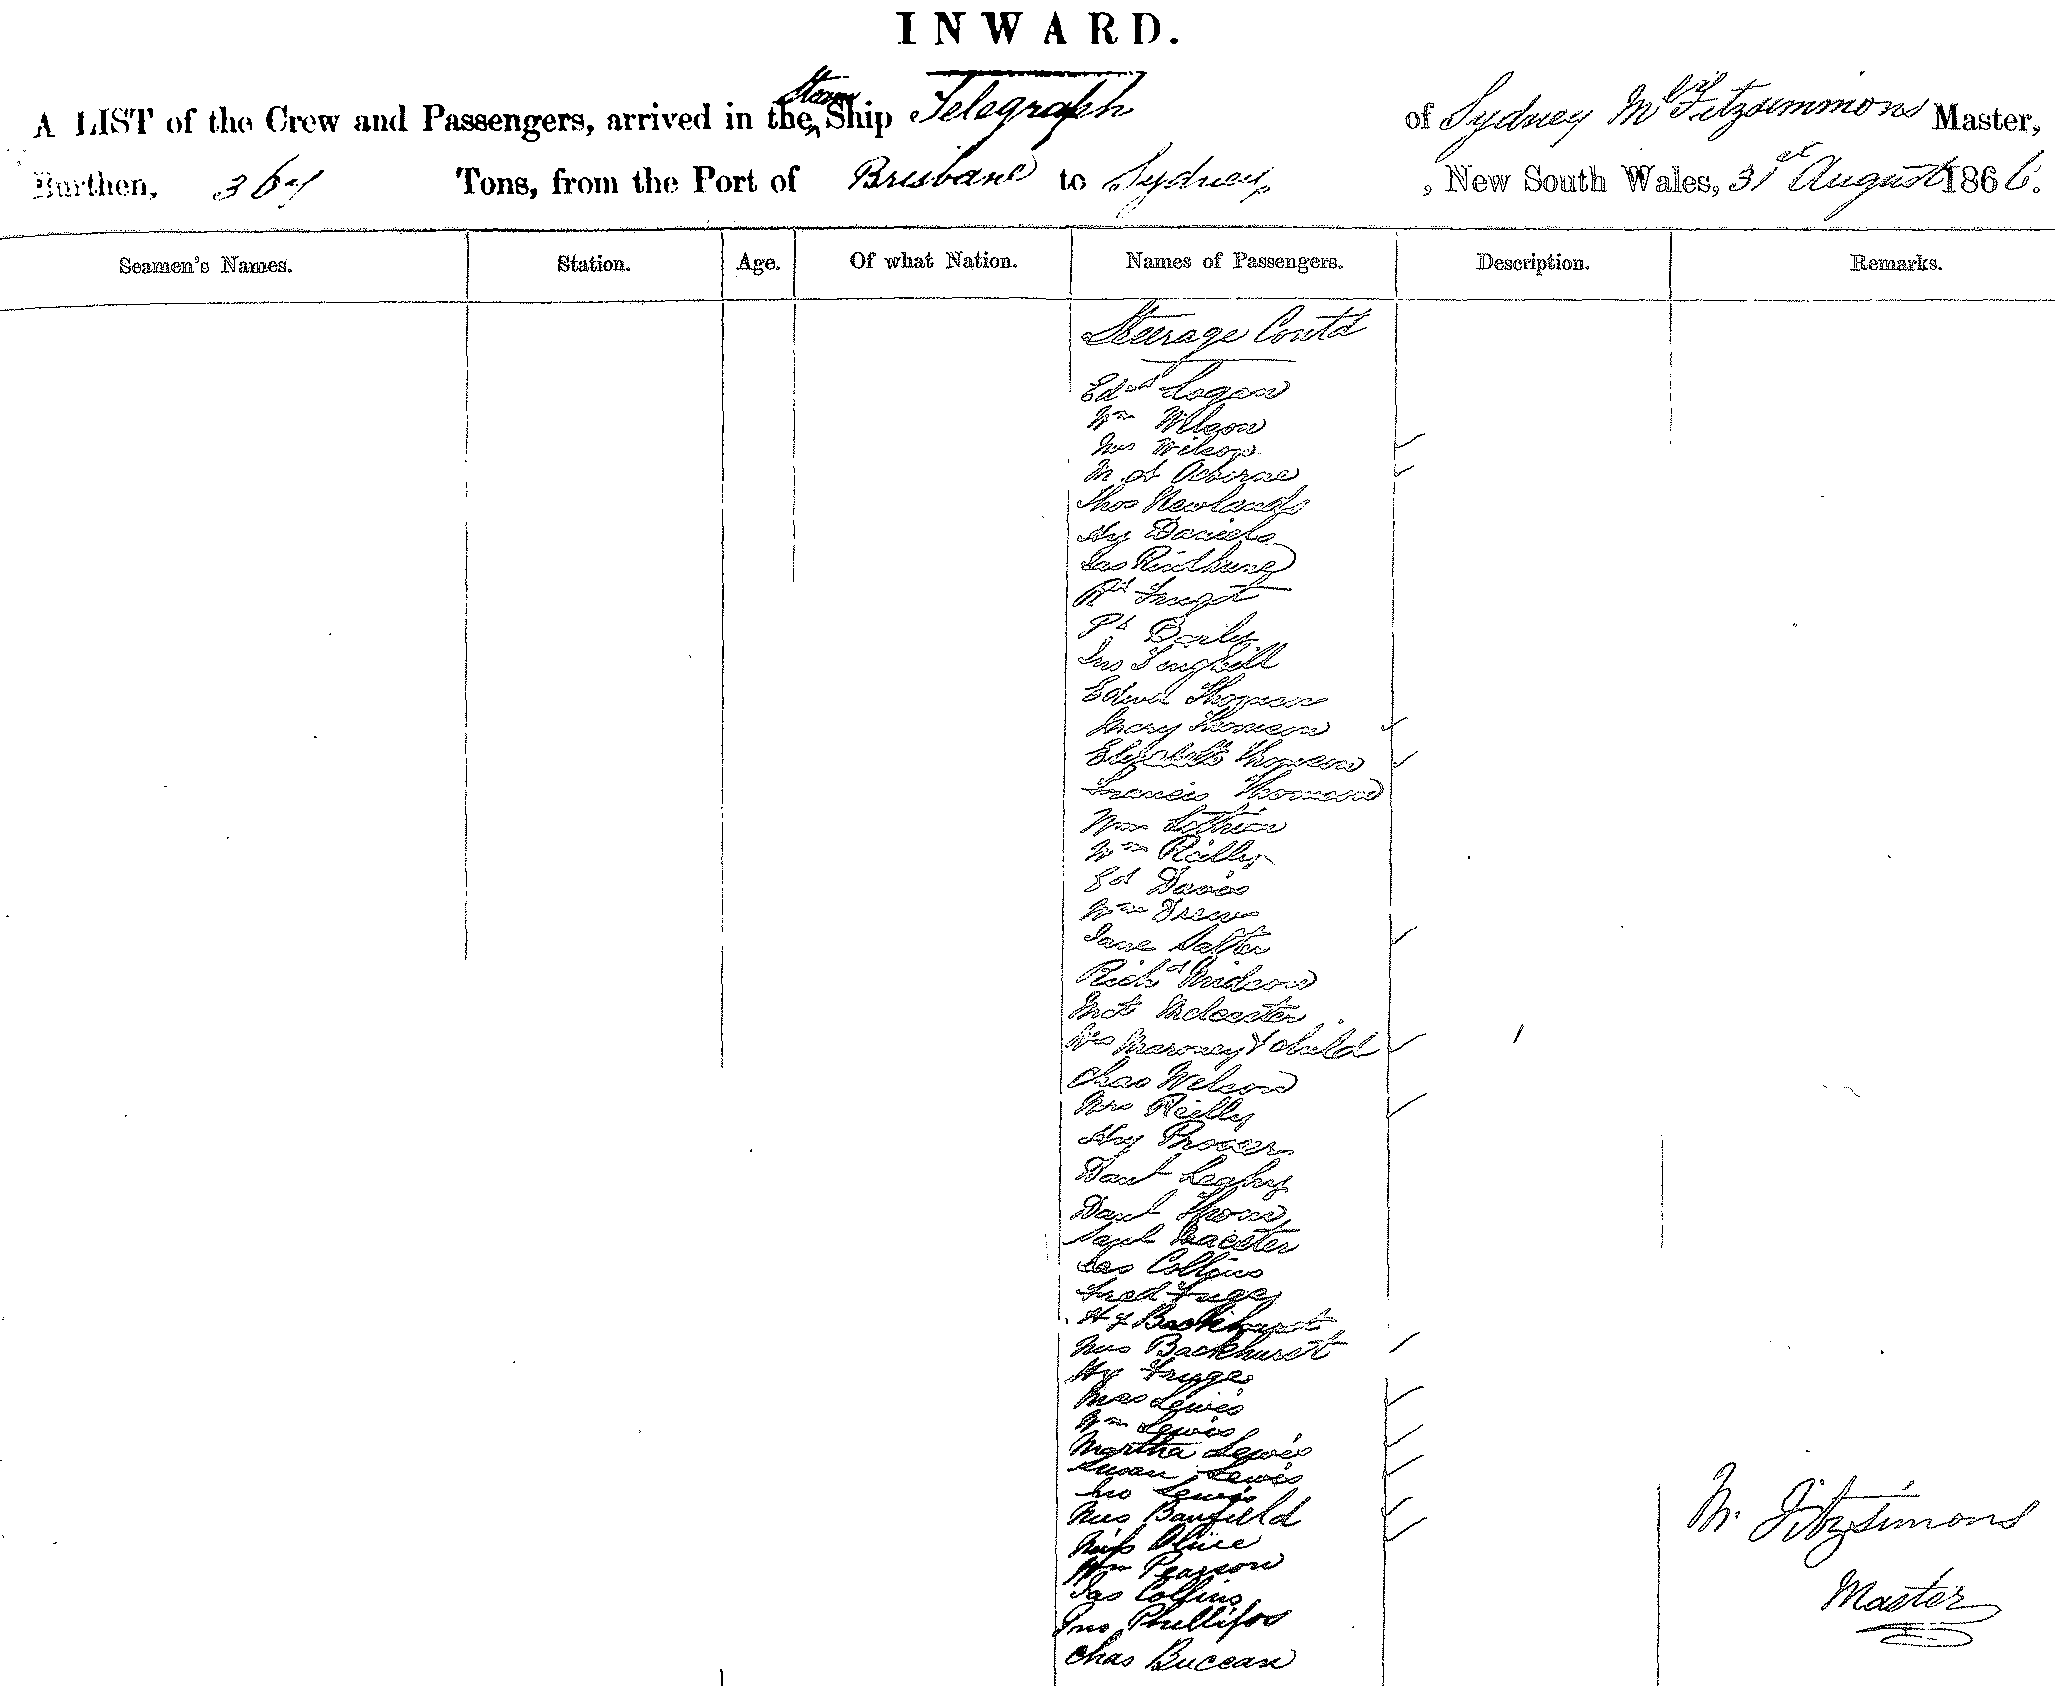 INWARD.
A LIST of the Crew and Passengers, arrived in the Steam Ship Telegraph of Sydney Fitzsimmons Master,
Burthen, 367 Tons, from the Port of Brisbane to Sydney, New South Wales, 31st August 1866.
Seamen's Names. Station. Age. Of what Nation. Names of Passengers. Description. Remarks.
Steerage Contd
Edwd Logan
Wm Wilson
Mrs Wilson
M A Osborne
Thos Newlands
Hy Daniels
Jas
Rd
Pt Daily
Jno
Edwd Thomson
Mary Thomson
Elizabeth Thomson
Francis Thomson
Wm Lothian
Wm Reilly
Ed Davis
Wm Drew
Jane Salter
Richd Midson
McLeester
Mrs Maroney & child
Chas Wilson
Mrs Reilly
Hy
Danl Leahy
Danl
Saml
Jas Collins
Fred
H J Backhurst
Mrs Backhurst
Hy
Mrs Lewis
Wm Lewis
Martha Lewis
Susan Lewis
Jno Lewis
Mrs Banfield
Miss Olive
Wm Pearson
Jas Collins
Jno Phillips
Chas Buccan
M. Fitzsimons
Master